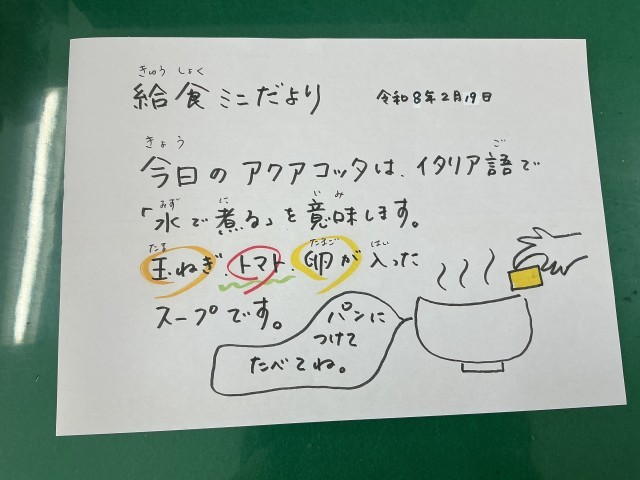 きゅう しょく
給食ミニだより 令和8年2月19日
きょう ご
今日のアクアコッタは、イタリア語で
みず に いみ
「水で煮る」を意味します。
たま たまご はい
玉ねぎ、トマト、卵が入った
スープです。
パンに
つけて
たべてね。